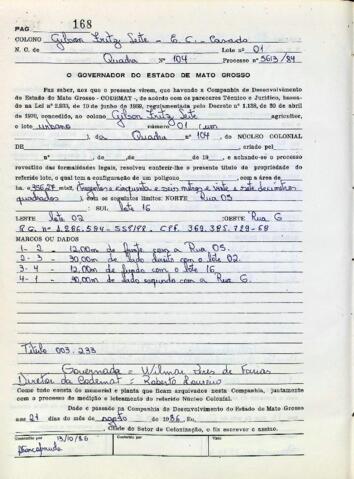 PAG. 168
COLONO Gilson Fritz Leite - E.C. - Casado
N. C. de Lote nº 01
Quadra nº 104 Processo nº 5613/84
O GOVERNADOR DO ESTADO DE MATO GROSSO
Faz saber, aos que o presente virem, que havendo a Companhia de Desenvolvimento
do Estado de Mato Grosso - CODEMAT -, de acordo com os pareceres Técnico e Jurídico, basea-
do na Lei nº 2.833, de 10 de junho de regulamentada pelo Decreto nº 1.138, de 30 de abril
de 1970, concedido, ao colono Gilson Fritz Leite agricultor,
o lote urbano número 01 (um
), da Quadra nº 104 do NÚCLEO COLONIAL
DE criado pelo
nº , de de de 19 , e achando-se o processo
revestido das formalidades legais, resolveu conferir-lhe o presente título de propriedade do
referido lote, o qual tem a configuração de um polígono , com a área de
mts2, e cinquenta e seis metros e vinte e sete decímetros
quadrados ), com os seguintes limites: NORTE Rua 05
SUL lote 16
LESTE lote 02 OESTE Rua G
MARCOS OU DADOS
1 - 2 - 12,00m de frente com a Rua 05.
2 - 3 - 30,00m do lado direito com o lote 02.
3 - 4 - 12,00m de fundo com o lote 16
4 - 1 - 30,00m do lado esquerdo com a Rua G.
Título 003.233
Governador = Wilmar Peres de Farias
Diretor da Codemat = Roberto Loureiro
Como tudo consta do memorial e planta que ficam arquivados nesta Companhia, juntamente
com o processo de medição e loteamento do referido Núcleo Colonial.
Dado e passado na Companhia de Desenvolvimento do Estado de Mato Grosso
aos 21 dias do mês de agosto de 1986. Eu,
, Chefe do Setor de Colonização, o fiz escrever e assino.
Conferido por 13/10/86
Conferido por
Visto